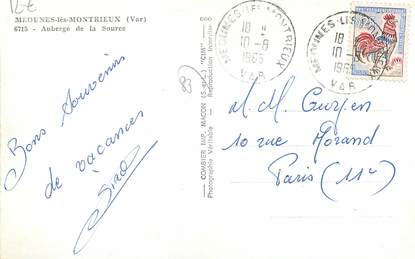 12€
MEOUNES-lès-MONTRIEUX (Var)
6715 - Auberge de la Source
Bons souvenirs
de vacances
COMBIER IMP. MACON (S.-et-L.) "CIM"
Photographie Véritable - Reproduction Interdite
83
MEOUNES-LES-MONTRIEUX
18 H
10-8
1965
VAR
MEOUNES-LES-MONTRIEUX
18 H
10-8
1965
VAR
M. M.
10 rue Morand
Paris (11e)